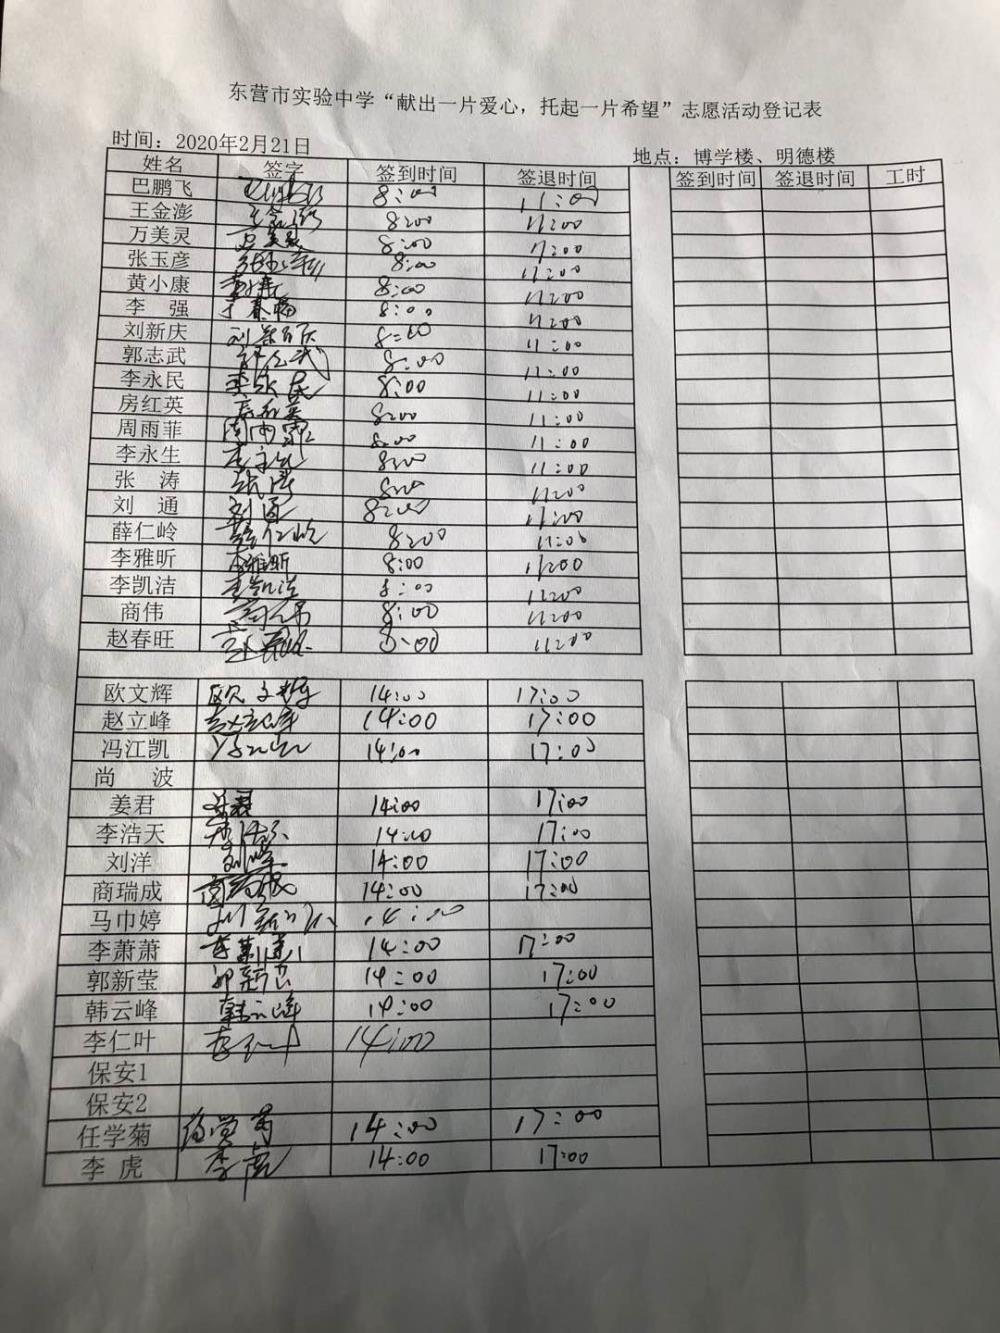 东营市实验中学“献出一片爱心，托起一片希望”志愿活动登记表
时间：2020年2月21日 地点：博学楼、明德楼
姓名 签字 签到时间 签退时间 签到时间 签退时间 工时
巴鹏飞 8:00 11:00
王金澎 王金澎 8:00 11:00
万美灵 万美灵 8:00 11:00
张玉彦 张玉彦 8:00 11:00
黄小康 8:00 11:00
李 强 8:00 11:00
刘新庆 刘新庆 8:00 11:00
郭志武 郭志武 8:00 11:00
李永民 李永民 8:00 11:00
房红英 房红英 8:00 11:00
周雨菲 周雨霏 8:00 11:00
李永生 李永生 8:00 11:00
张 涛 张涛 8:00 11:00
刘 通 刘通 8:00 11:00
薛仁岭 薛仁岭 8:00 11:00
李雅昕 李雅昕 8:00 11:00
李凯洁 李凯洁 8:00 11:00
商伟 商伟 8:00 11:00
赵春旺 赵春旺 8:00 11:00
欧文辉 欧文辉 14:00 17:00
赵立峰 赵立峰 14:00 17:00
冯江凯 14:00 17:00
尚 波
姜君 姜君 14:00 17:00
李浩天 李浩天 14:00 17:00
刘洋 刘洋 14:00 17:00
商瑞成 商瑞成 14:00 17:00
马巾婷 14:00
李萧萧 李萧萧 14:00 17:00
郭新莹 郭新莹 14:00 17:00
韩云峰 韩云峰 14:00 17:00
李仁叶 李仁叶 14:00
保安1
保安2
任学菊 14:00 17:00
李 虎 李虎 14:00 17:00